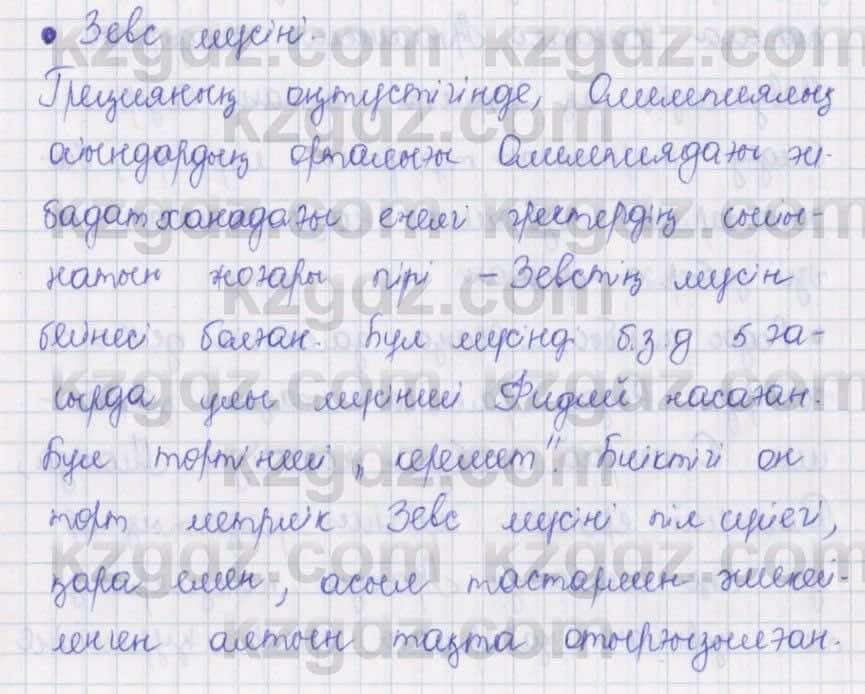 • Зевс мүсіні.
Грецияның оңтүстігінде, Олимпиялық
ойындардың орталығы Олимпиядағы ғи-
бадатханадағы ежелгі гректердің сыйы-
натын жоғары пірі – Зевстің мүсін
бейнесі болған. Бұл мүсінді б.з.д 5 ға-
сырда ұлы мүсінші Фидий жасаған.
Бұл төртінші „керемет". Биіктігі он
төрт метрлік Зевс мүсіні піл сүйегі,
қара емен, асыл тастармен әшекей-
ленген алтын тақта отырғызылған.
kzgdz.com